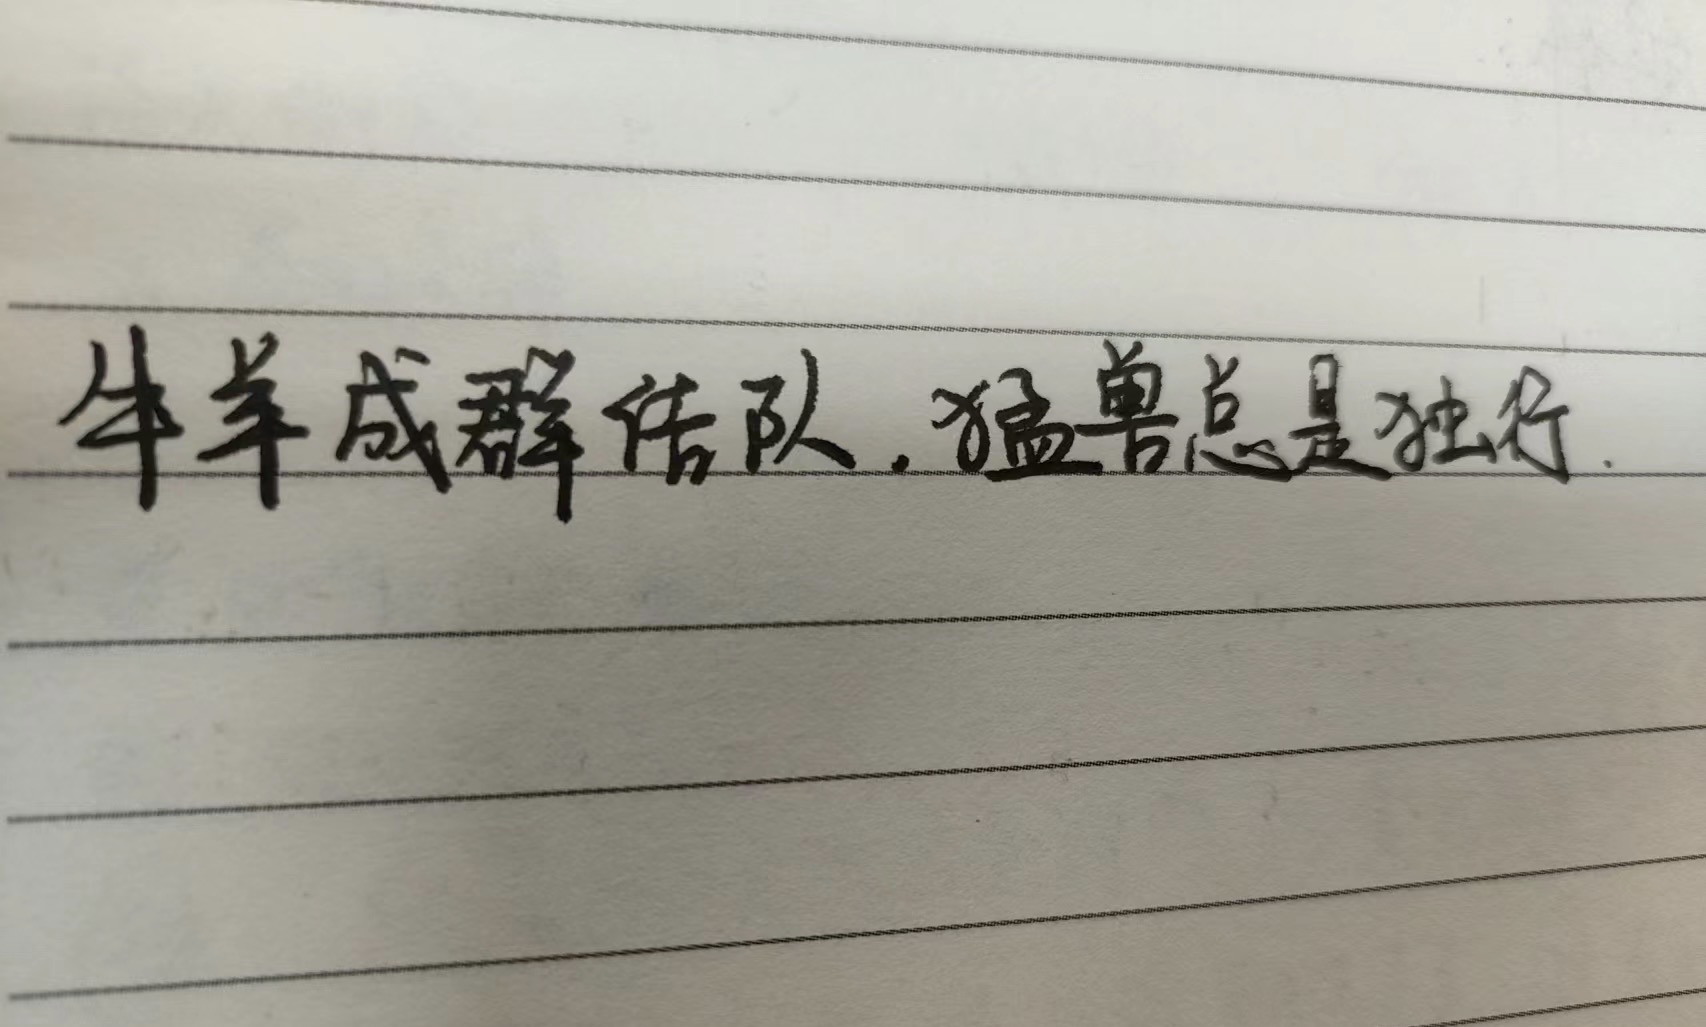 牛羊成群结队.猛兽总是独行.